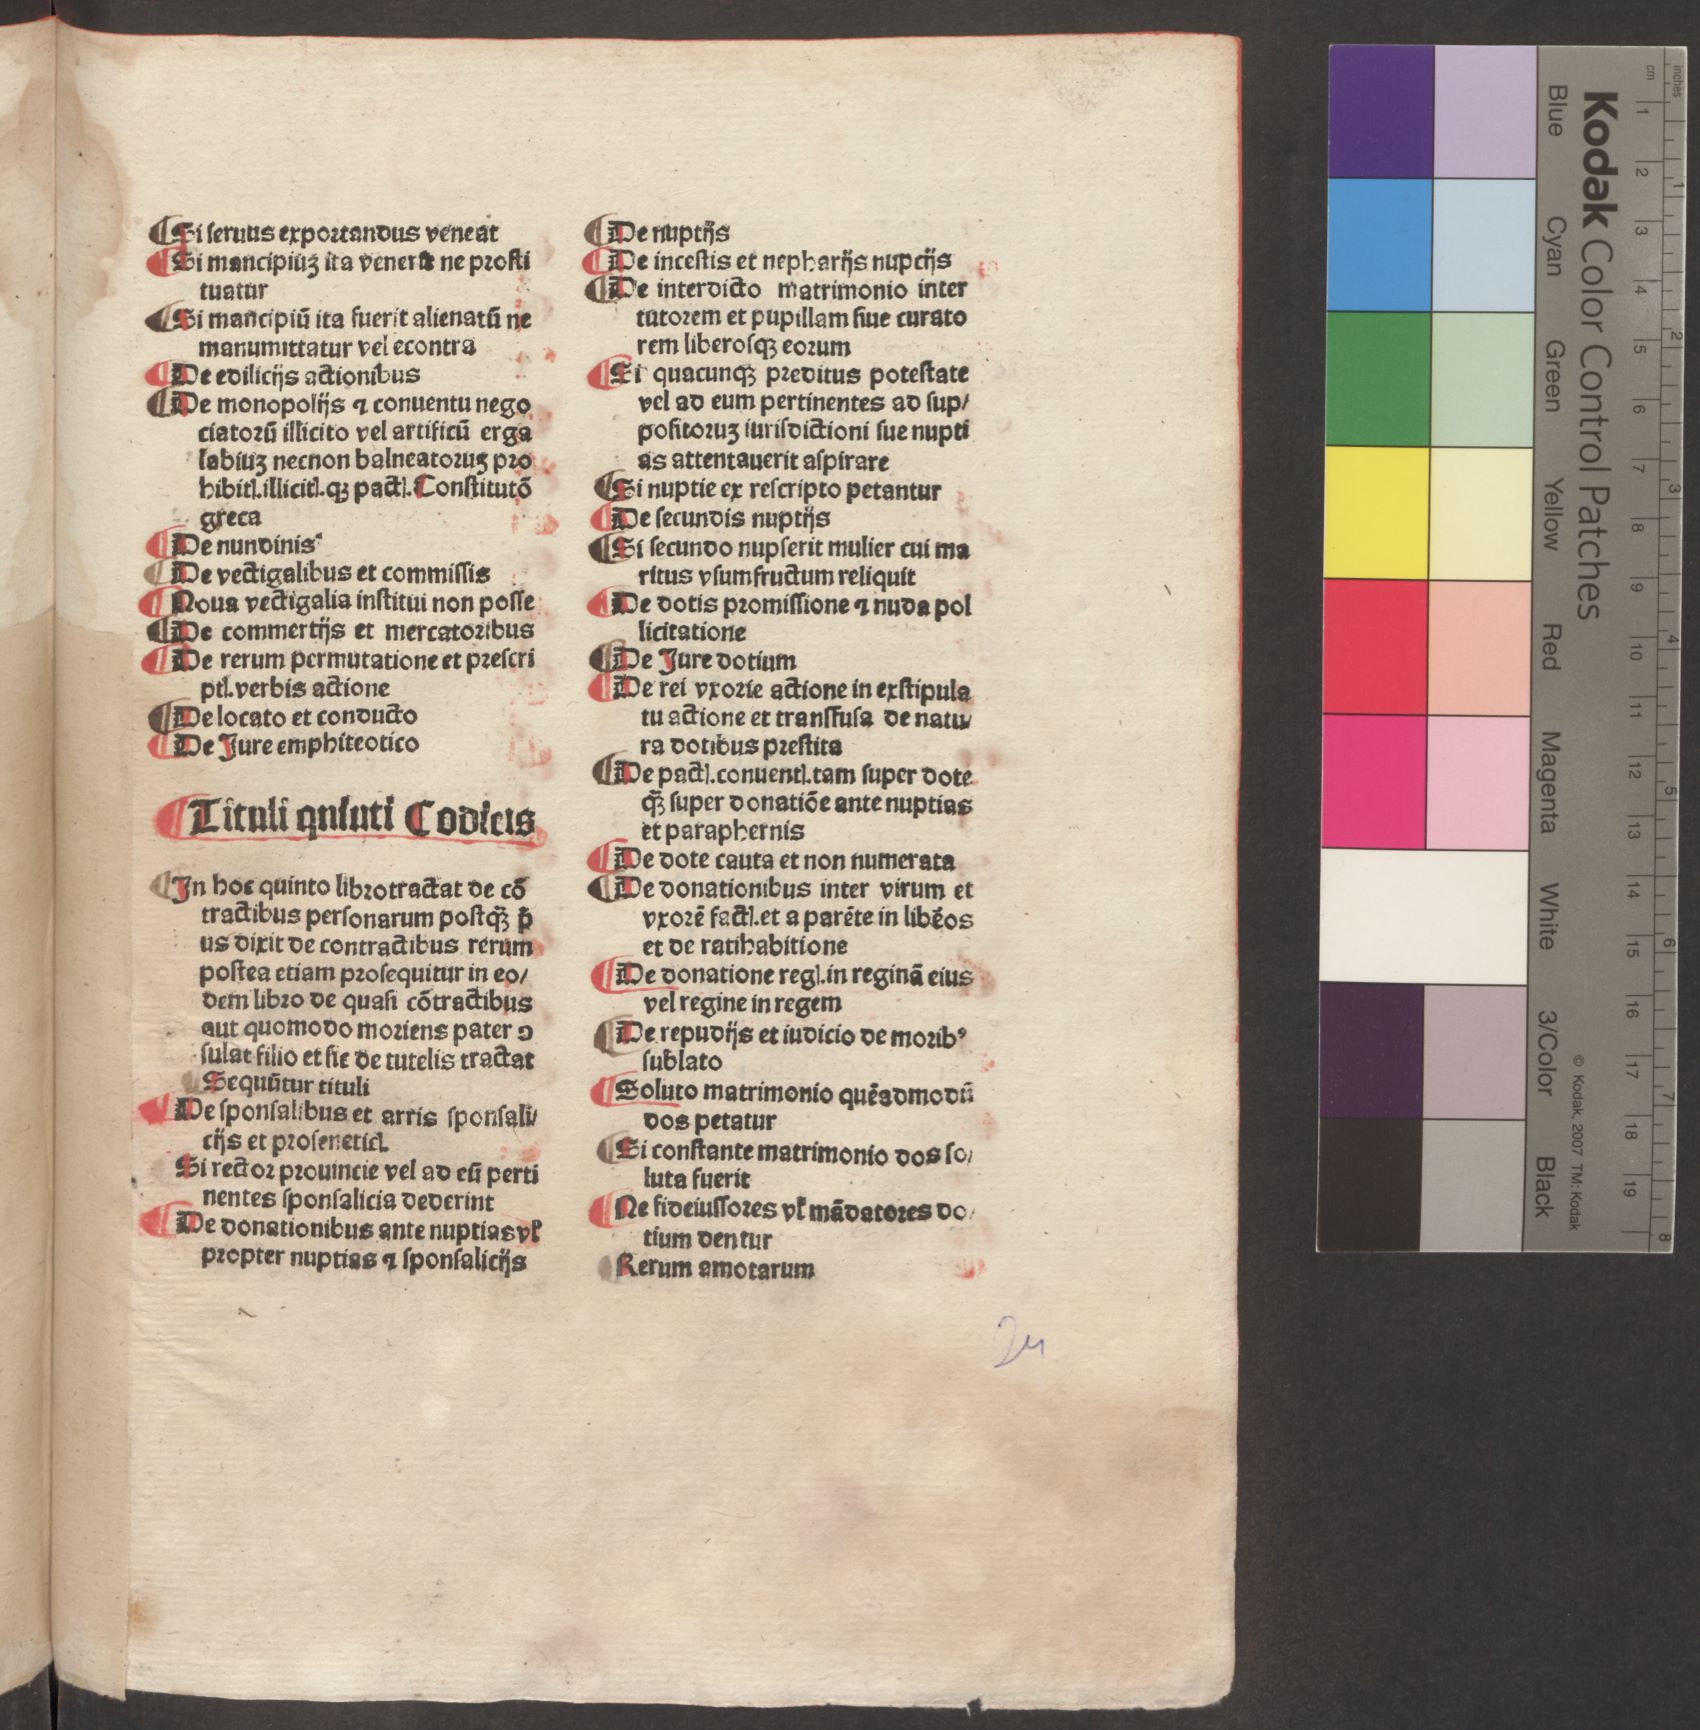 Si seruus exportandus veneat
Si mancipiuʒ ita venerit ne prosti
tuatur
Si mancipiū ita fuerit alienatū ne
manumittatur vel econtra
De edilicijs actionibus
De monopolijs ⁊ conuentu nego
ciatorū illicito vel artificū erga
labiuʒ necnon balneatoruʒ pro
hibitl.illicitl.qʒ pactl.Constitutō
greca
De nundinis
De vectigalibus et commissis
Noua vectigalia institui non posse
De commertijs et mercatoribus
De rerum permutatione et prescri
ptl.verbis actione
De locato et conducto
De Jure emphiteotico
Tituli quinti Codicis
In hoc quinto libro tractat de cō
tractibus personarum postqʒ̄ p̄
us dixit de contractibus rerum
postea etiam prosequitur in eo/
dem libro de quasi cōtractibus
aut quomodo moriens pater ꝯ
sulat filio et sic de tutelis tractat
Sequūtur tituli
De sponsalibus et arris sponsali/
cijs et proseneticl.
Si rector prouincie vel ad eū perti
nentes sponsalicia dederint
De donationibus ante nuptias vł
propter nuptias ⁊ sponsalicijs
De nuptijs
De incestis et nepharijs nupcijs
De interdicto matrimonio inter
tutorem et pupillam siue curato
rem liberosqʒ eorum
Si quacunqʒ preditus potestate
vel ad eum pertinentes ad sup/
positoruʒ iurisdictioni sue nupti
as attentauerit aspirare
Si nuptie ex rescripto petantur
De secundis nuptijs
Si secundo nupserit mulier cui ma
ritus vsumfructum reliquit
De dotis promissione ⁊ nuda pol
licitatione
De Jure dotium
De rei vxorie actione in exstipula
tu actione et transfusa de natu/
ra dotibus prestita
De pactl.conuentl.tam super dote
qʒ̄ super donatiōe ante nuptias
et paraphernis
De dote cauta et non numerata
De donationibus inter virum et
vxorē factl.et a parēte in libēos
et de ratihabitione
De donatione regl.in reginā eius
vel regine in regem
De repudijs et iudicio de moribꝰ
sublato
Soluto matrimonio quēadmodū
dos petatur
Si constante matrimonio dos so/
luta fuerit
Ne fideiussores vł mādatores do/
tium dentur
Rerum amotarum
Kodak Color Control Patches
Blue Cyan Green Yellow Red Magenta White 3/Color Black
© Kodak, 2007 TM: Kodak
cm 1 2 3 4 5 6 7 8 9 10 11 12 13 14 15 16 17 18 19
inches 1 2 3 4 5 6 7 8